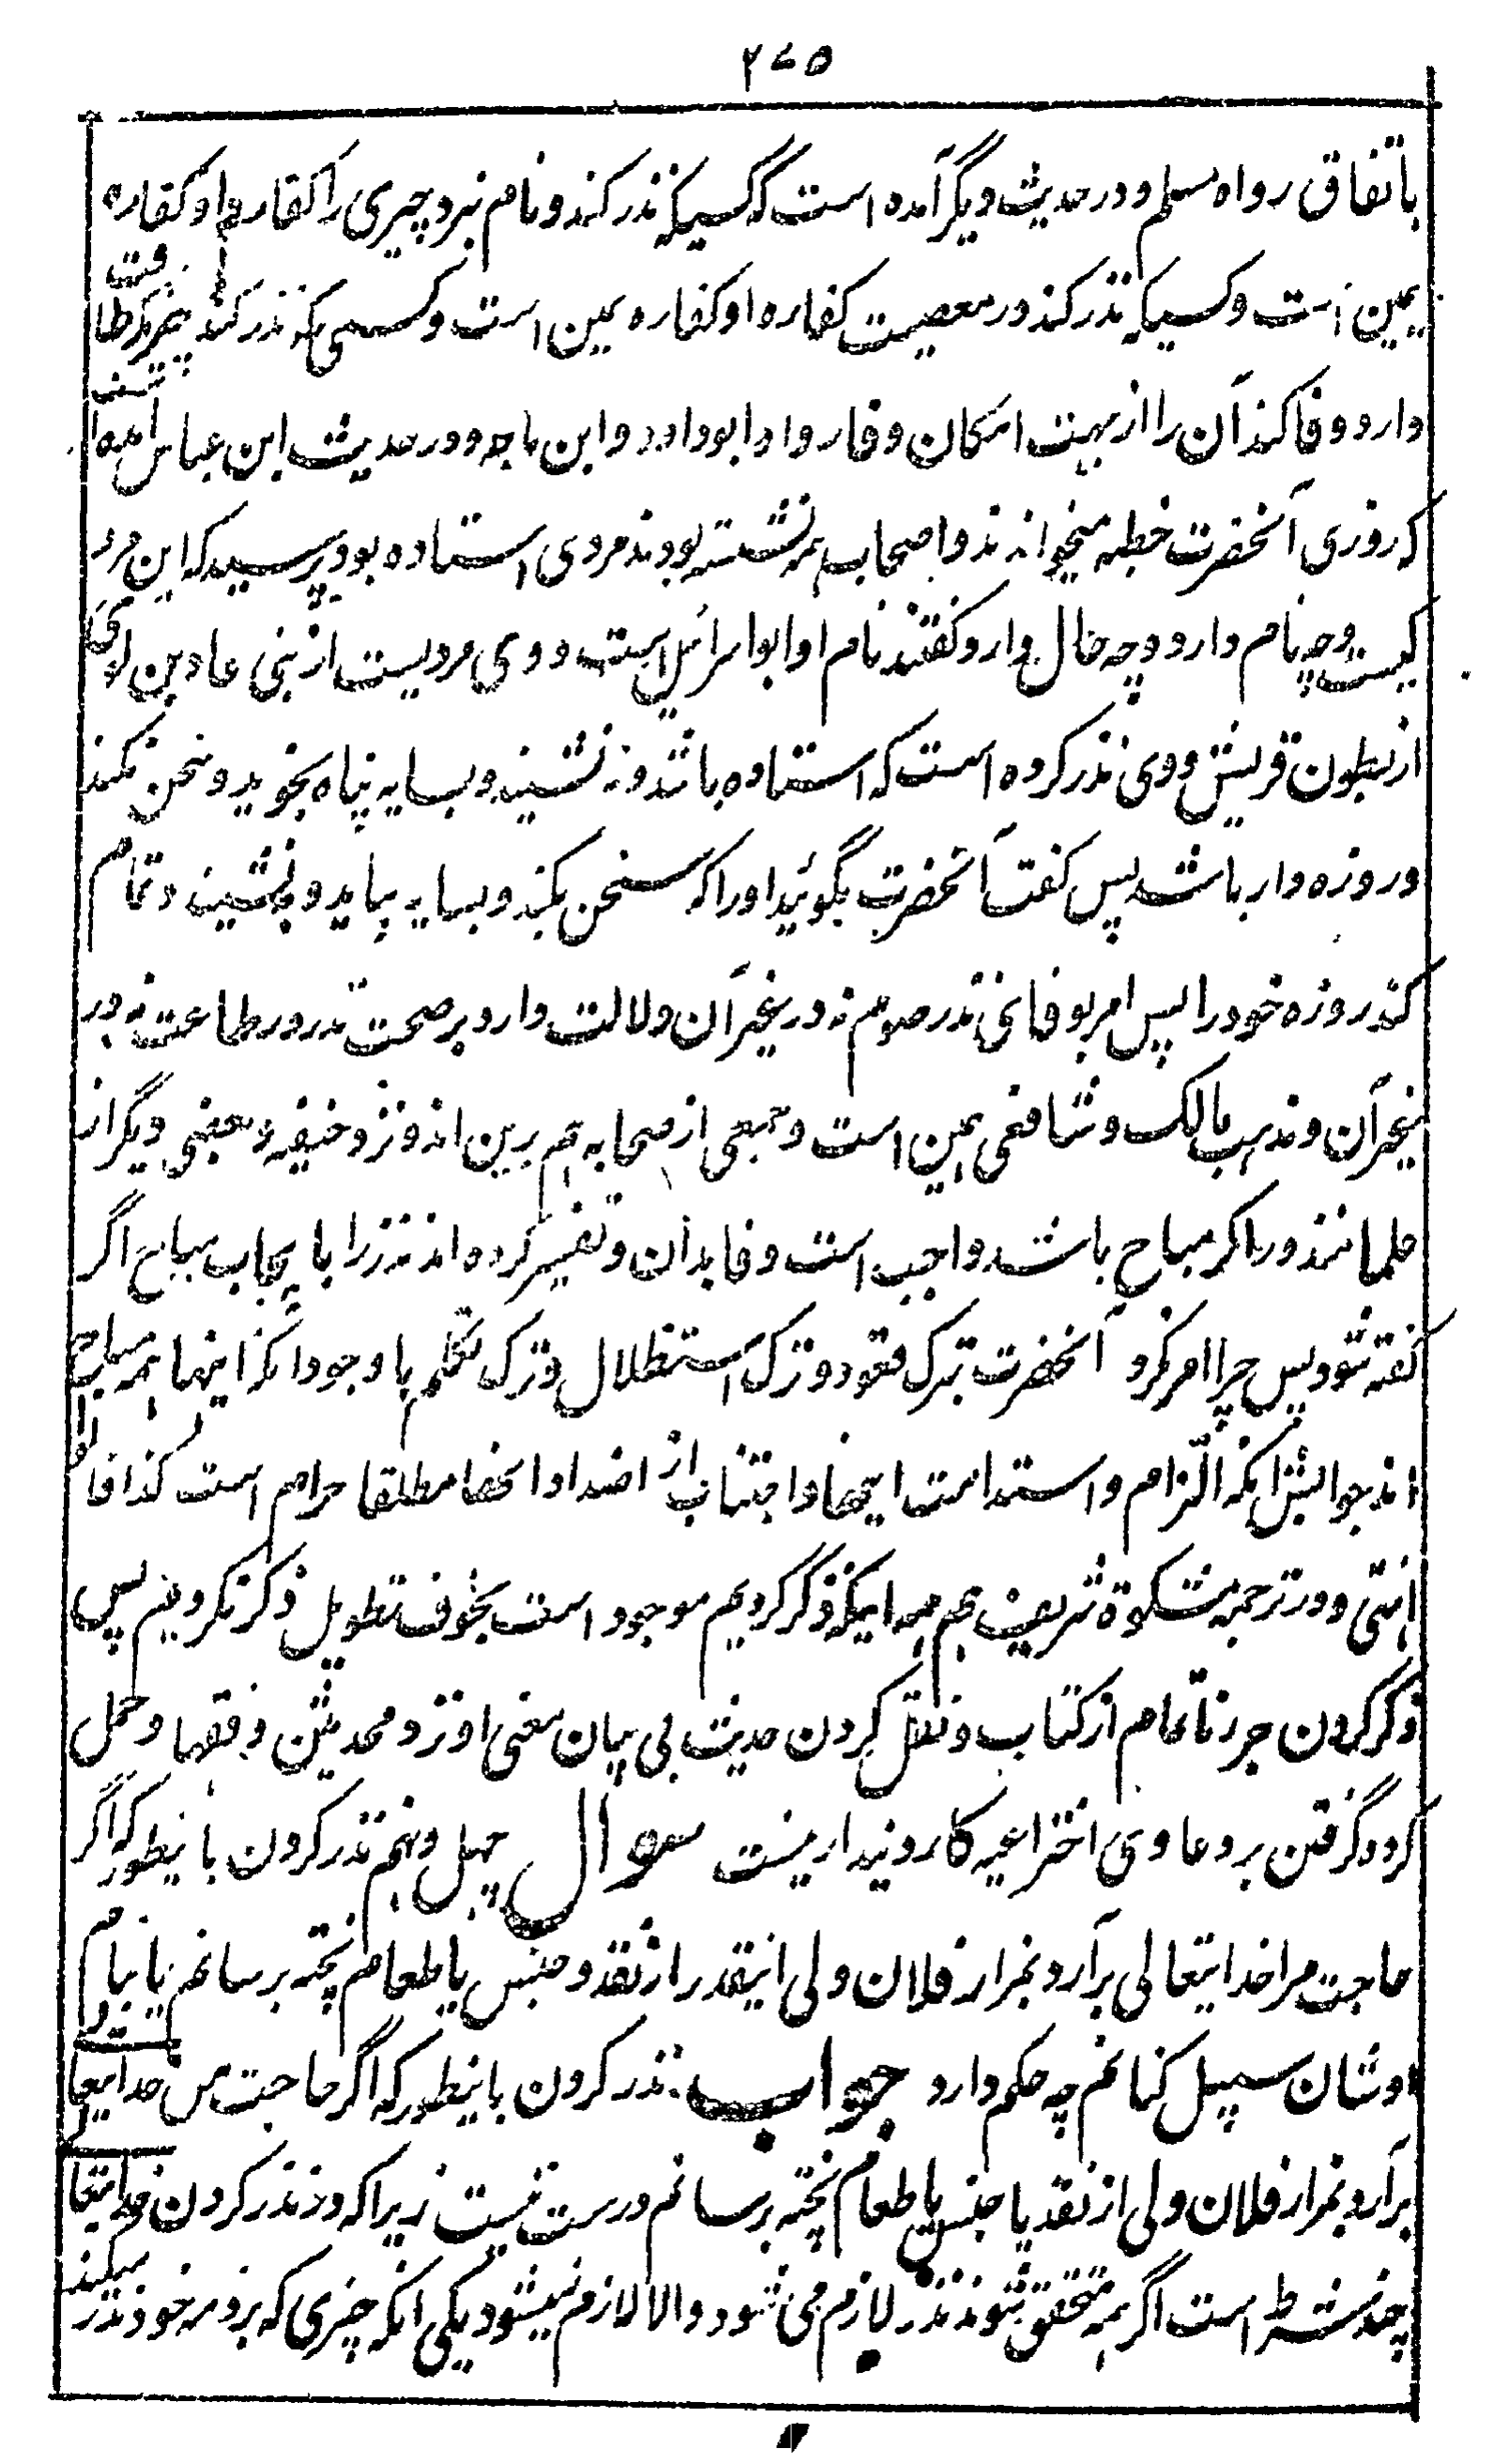 ۲۷۵
باتفاق رواه مسلم و در حدیث دیگر آمده است که کسیکه نذر کند و نام نبرد چیزی را کفاره او کفاره
یمین است و کسیکه نذر کند در معصیت کفاره او کفاره یمین است و کسی که نذر کند چیزیکه طاقت
دارد وفا کند آن را از جهت امکان وفا رواه ابوداود و ابن ماجه و در حدیث ابن عباس آمده است
که روزی آنحضرت خطبه میخواندند و اصحاب همه نشسته بودند مردی استاده بود پرسید که این مرد
کیست و چه نام دارد و چه حال دارد گفتند نام او ابو اسرائیل است و وی مردیست از بنی عادین لوی
از بطون قریش و وی نذر کرده است که استاده باشد و نه نشیند و بسایه پناه نجوید و سخن نکند
و روزه دار باشد پس گفت آنحضرت بگوئید او را که سخن بکند و بسایه بیاید و بنشیند و تمام
کند روزه خود را پس امر بوفائی نذر صوم نه در غیر آن دلالت دارد بر صحت نذر در طاعت نه در
غیر آن و مذهب مالک و شافعی همین است و جمعی از صحابه هم برین اند و نزد حنیفه و بعضی دیگر از
علما نذر را اگر مباح باشد واجب است وفا بدان و تفسیر کرده اند نذر را بایجاب مباح اگر
گفته شود پس چرا امر نکرد آنحضرت بترک قعود و ترک استظلال و ترک تکلم با وجود آنکه اینها همه مباح
اند جوابش آنکه التزام و استدامت اینها و اجتناب از اضداد انها مطلقا حرام است کذا قالوا
انتهی و در ترجمه مشکوة شریف هم همه اینکه ذکر کردیم موجود است بخوف تطویل ذکر نکردیم پس
ذکر کردن چیز ناتمام از کتاب و نقل کردن حدیث بی بیان معنی او نزد محدثین و فقها و حمل
کرد گرفتن بر دعاوی اختراعیه کار دیندار نیست سوال چهل و نهم نذر کردن باینطور که اگر
حاجت مرا خدایتعالی برآرد بمزار فلان ولی اینقدر از نقد و جنس یا طعام پخته برسانم یا بنام
اوشان سبیل کنانم چه حکم دارد جواب نذر کردن باینطور که اگر حاجت من خدایتعالی
برآرد بمزار فلان ولی از نقد یا جنس یا طعام پخته برسانم درست نیست زیرا که در نذر کردن خدایتعالی
چند شرط است اگر همه متحقق شوند نذر لازم می شود والا لازم نمیشود یکی آنکه چیزی که بر ذمه خود نذر میکند